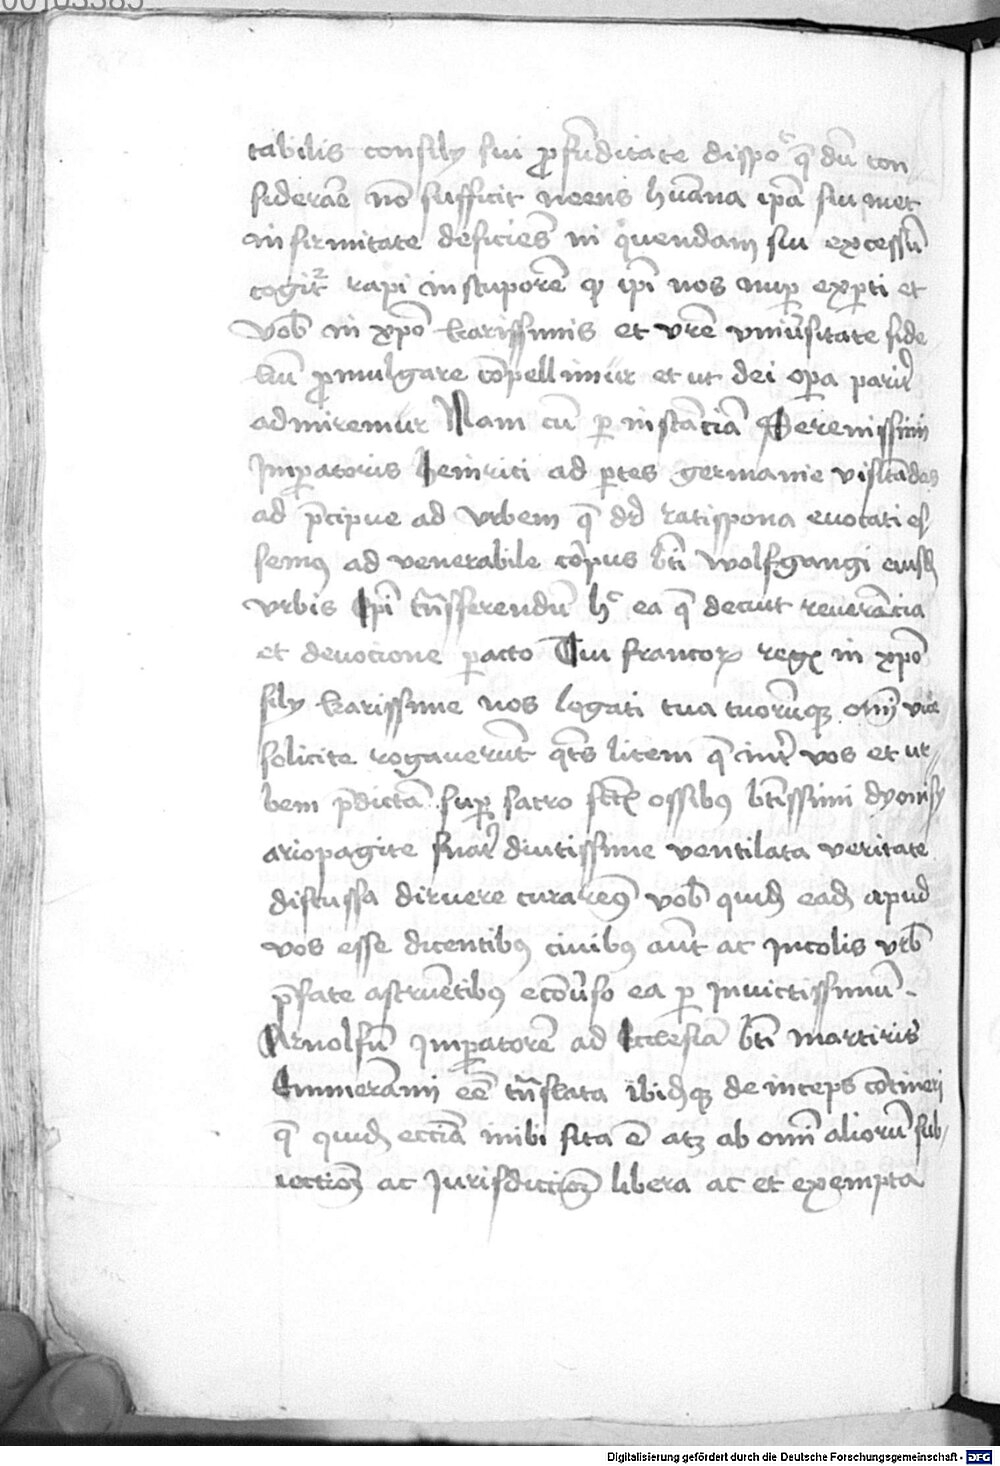 00103385
tabilis consilÿ sui ꝓfūditate dispoᵗ q̄ dū con
siderāe nō sufficit mens hūana ip̄a sui met
infirmitate deficiēs in quendam sui excessū
cogitʳ rapi in stuporē ip̄i nos nuꝑ exꝑti et
vob̄ in xp̄o karissimis et vr̄e vniūsitate fide
liū ꝓmulgare cōpellimur et ut dei oꝑa parit̄
admiremur Nam cū ꝑ instāciā Serenissimi
Imꝑatoris Heinrici ad ꝑtes germanie visitādas
ad p̄cipue ad vrbem q̄ dr̄ ratispona euocati es
semꝰ ad venerabile corpus bt̄i wolfgangi eiusd̄
vrbis Ep̄i tn̄sferendū hᶜ ea q̄ decuit reuerācia
et deuocione ꝑacto Tui francoꝝ regꝭ in xp̄o
filÿ karissime nos legati tua tuorūqꝫ om̄ vice
solicite rogauerūt litem q̄ int̄ vos et ur
bem p̄dictā suꝑ sacro ossibꝰ bt̄issimi dyonisÿ
ariopagite fuāt diutissime ventilata veritate
discussa diruere curaremꝰ vob̄ quid̄ ead̄ apud
vos esse dicentibꝰ ciuibꝰ aut̄ ac Incolis vrb̄
p̄fate astruētibꝰ econūso ea ꝑ Inuictissimū -
Arnolfū Imꝑatorē ad Ecclesiā bt̄i martiris
Emmerāmi eē tn̄slata ibid̄qꝫ de inceps cōtineri
q̄ quid̄ eccīa inibi sita ē atqꝫ ab om̄i aliorū sub/
iectiōe ac Jurisdictiōe libera ac et exempta
Digitalisierung gefördert durch die Deutsche Forschungsgemeinschaft - DFG